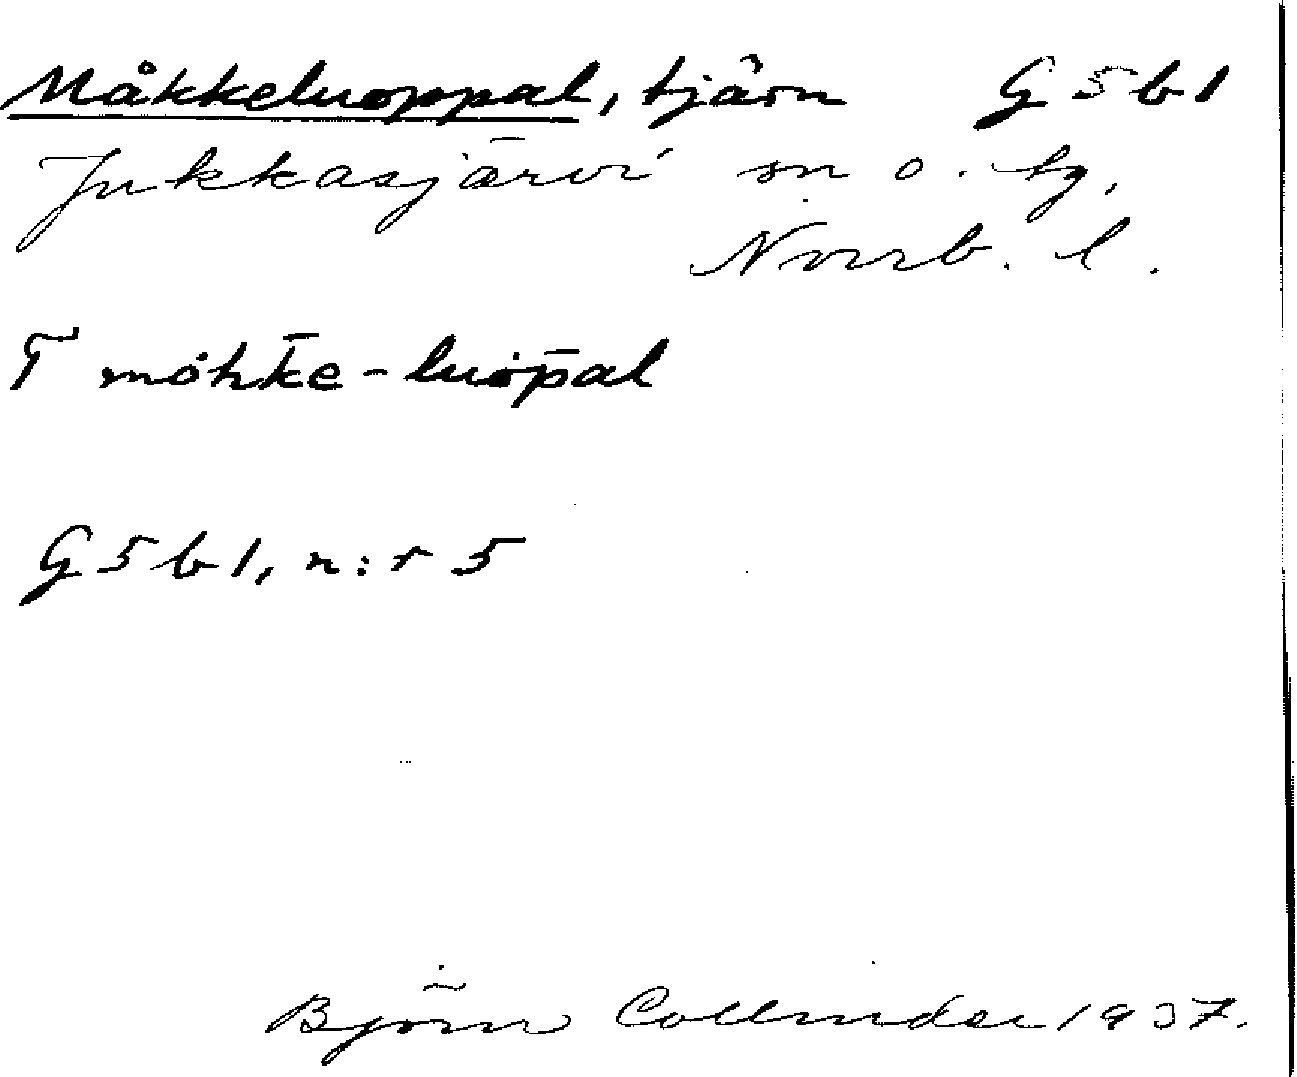 Måkkeluoppal, tjärn G5b1
Jukkasjärvi sn o. tg,
Norrb. l.
T mȯhk̄e-luȯp̄al
G5b1, n:r 5
Björn Collinder 1937.